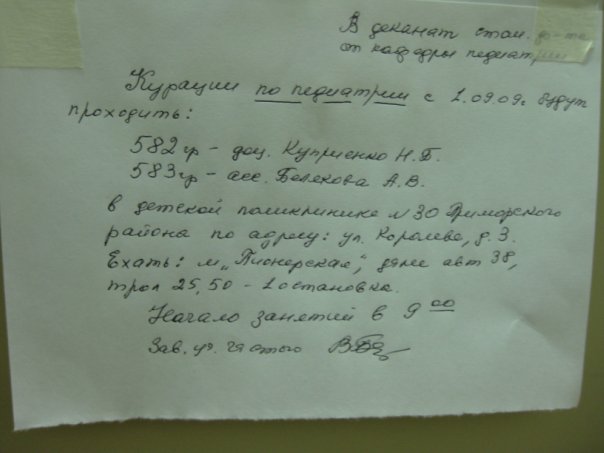 В деканат стом. ф-та
от кафедры педиатрии
Курации по педиатрии с 1.09.09г будут
проходить:
582гр - доц. Куприенко Н.Б.
583гр - асс. Белякова А.В.
в детской поликлинике N30 Приморского
района по адресу: ул. Королева, д. 3.
Ехать: м "Пионерская", далее авт 38,
трол 25, 50 - 1 остановка.
Начало занятий в 9 00
Зав. уч.